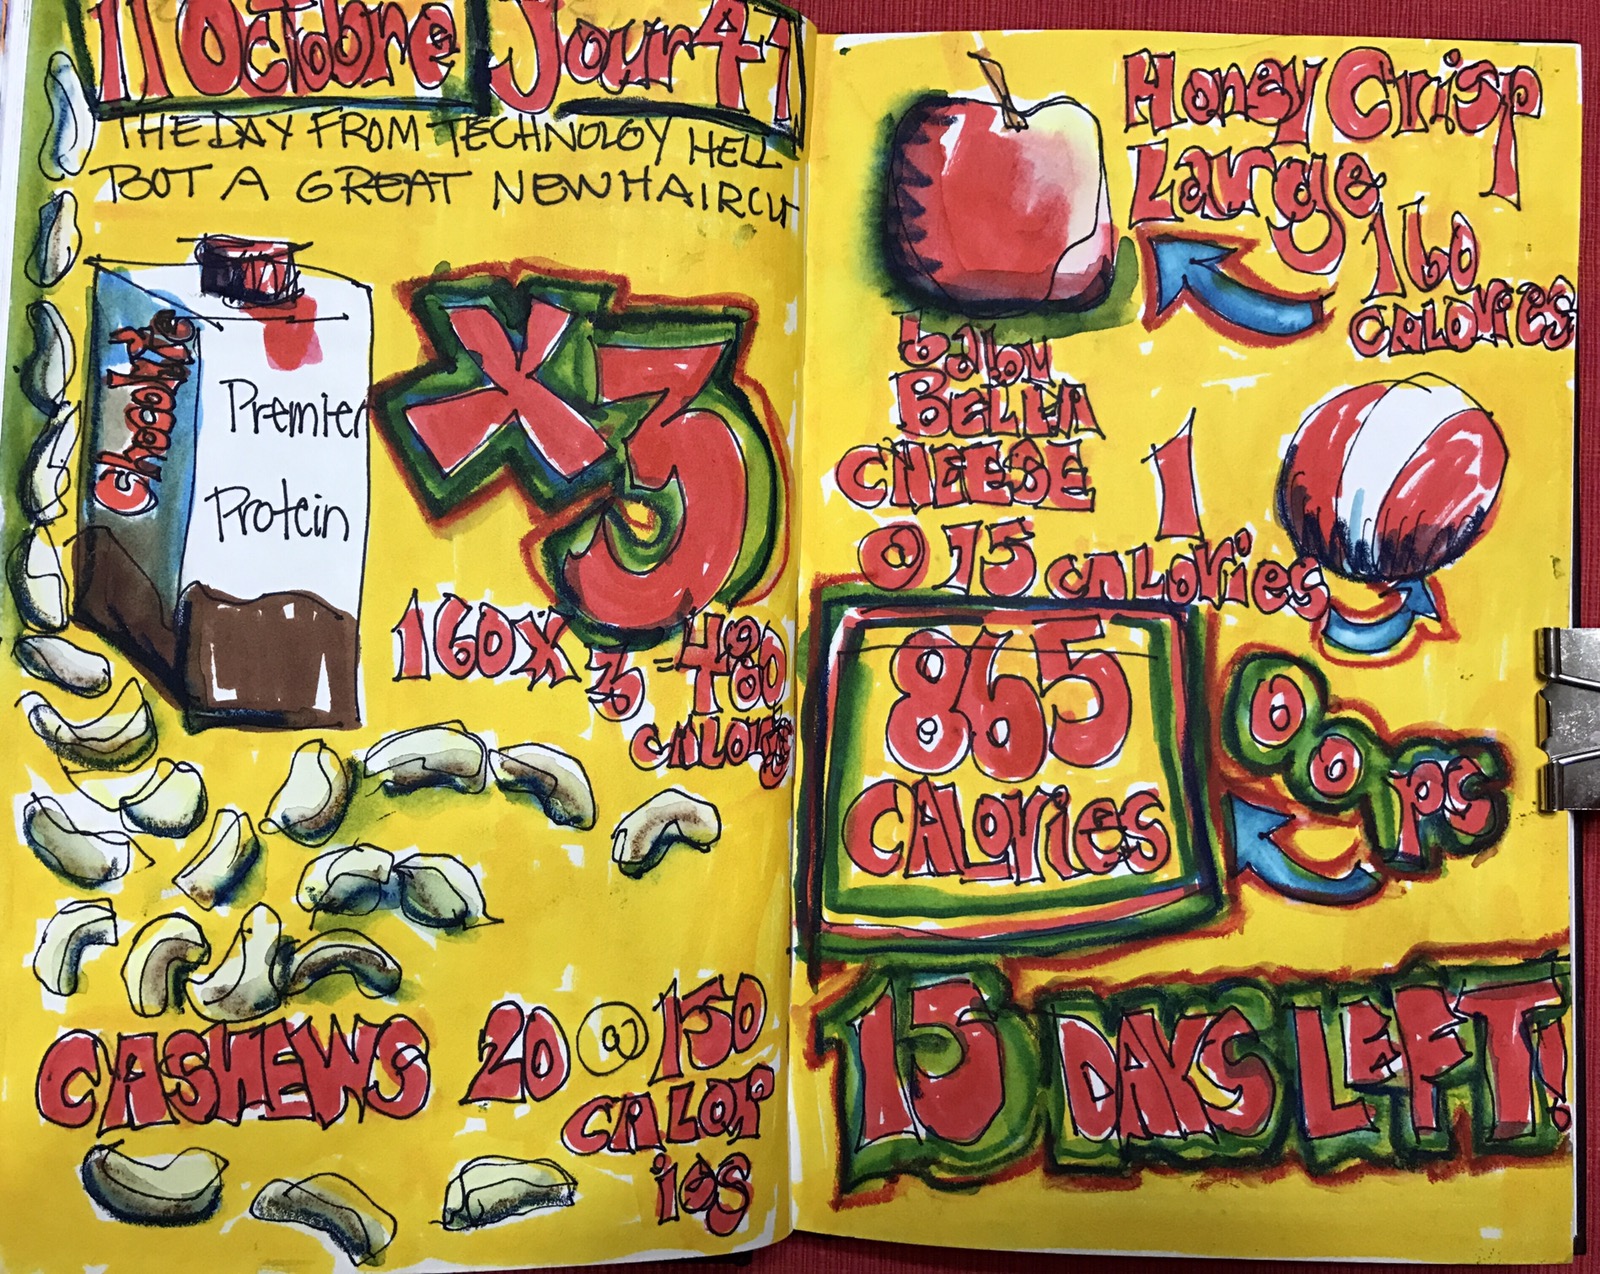 11 Octobre Jour 41
THE DAY FROM TECHNOLOGY HELL
BUT A GREAT NEW HAIRCUT
Chocolate
Premier
Protein
X3
160 x 3 = 480
CALORIES
CASHEWS 20 @ 150
CALOR
ies
Honey Crisp
Large
160
CALORIES
baby
BELLA
CHEESE 1
@ 75 CALORIES
865
CALORIES
OOPS
15 DAYS LEFT!